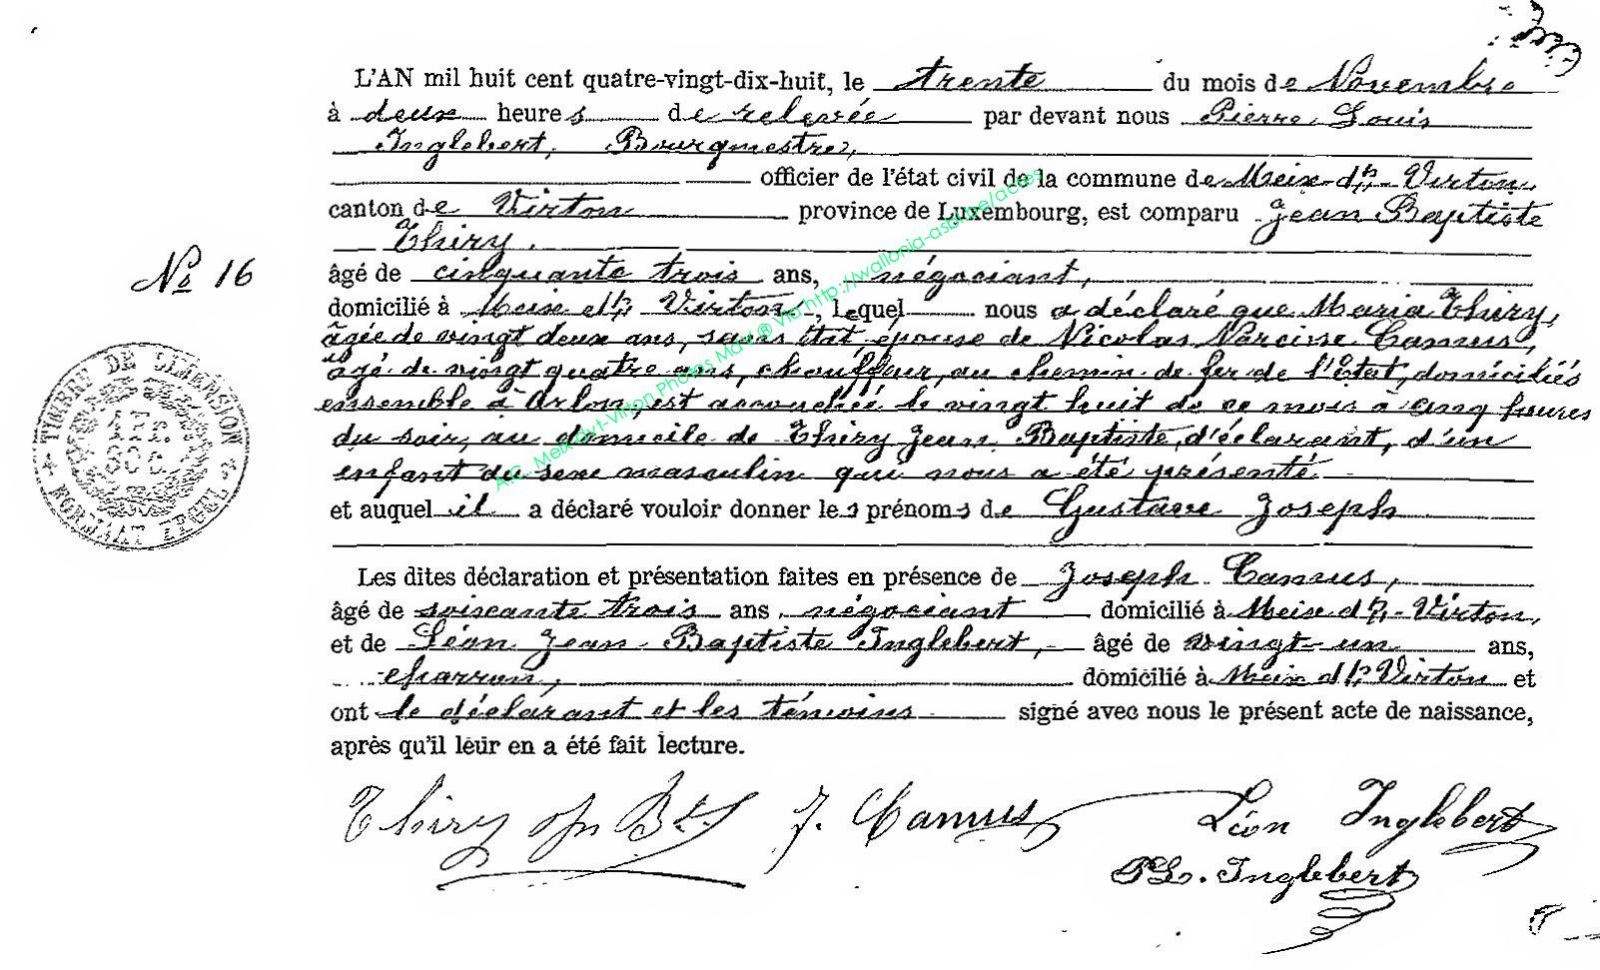 L'AN mil huit cent quatre-vingt-dix-huit, le trente du mois de Novembre
à deux heures de relevée par devant nous Pierre Louis
Inglebert, Bourgmestre,
officier de l'état civil de la commune de Meix-dt-Virton,
canton de Virton province de Luxembourg, est comparu Jean Baptiste
Thiry.
No 16
âgé de cinquante trois ans, négociant,
domicilié à Meix dt Virton, lequel nous a déclaré que Maria Thiry,
âgée de vingt deux ans, sans état, épouse de Nicolas Narcisse Camus,
âgé de vingt quatre ans, chauffeur, au chemin de fer de l'Etat, domiciliés
ensemble à Arlon, est accouchée le vingt huit de ce mois à cinq heures
du soir, au domicile de Thiry Jean Baptiste, déclarant, d'un
enfant du sexe masculin qui nous a été présenté
et auquel il a déclaré vouloir donner les prénoms de Gustave Joseph
Les dites déclaration et présentation faites en présence de Joseph Camus,
âgé de soixante trois ans, négociant domicilié à Meix dt-Virton,
et de Léon Jean-Baptiste Inglebert, âgé de vingt-un ans,
charron, domicilié à Meix dt Virton et
ont le déclarant et les témoins signé avec nous le présent acte de naissance,
après qu'il leur en a été fait lecture.
TIMBRE DE DIMENSION
Thiry Bte J. Camus Léon Inglebert
PL. Inglebert